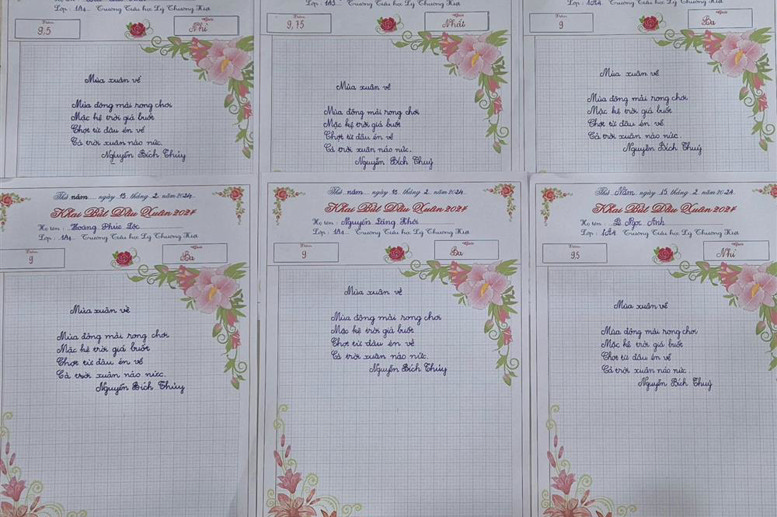 Lớp : 1A2 Trường Tiểu học Lý Thường Kiệt
Điểm
9,5
Nhì
Mùa xuân về
Mùa đông mải rong chơi
Mặc kệ trời giá buốt
Chợt từ đâu én về
Cả trời xuân náo nức.
Nguyễn Bích Thủy
Lớp : 1A2 Trường Tiểu học Lý Thường Kiệt
Điểm
9,75
Nhất
Mùa xuân về
Mùa đông mải rong chơi
Mặc kệ trời giá buốt
Chợt từ đâu én về
Cả trời xuân náo nức.
Nguyễn Bích Thuỷ
Lớp : Trường Tiểu học Lý Thường Kiệt
Điểm
9
Ba
Mùa xuân về
Mùa đông mải rong chơi
Mặc kệ trời giá buốt
Chợt từ đâu én về
Cả trời xuân náo nức.
Nguyễn Bích Thuỷ
Thứ năm ngày 15 tháng 2 năm 2024
Khai Bút Đầu Xuân 2024
Họ tên : Hoàng Phúc Lộc
Lớp : Trường Tiểu học Lý Thường Kiệt
Điểm
9
Ba
Mùa xuân về
Mùa đông mải rong chơi
Mặc kệ trời giá buốt
Chợt từ đâu én về
Cả trời xuân náo nức.
Nguyễn Bích Thủy
Thứ năm ngày 15 tháng 2 năm 2024
Khai Bút Đầu Xuân 2024
Họ tên : Nguyễn Đăng Khôi
Lớp : Trường Tiểu học Lý Thường Kiệt
Điểm
9
Ba
Mùa xuân về
Mùa đông mải rong chơi
Mặc kệ trời giá buốt
Chợt từ đâu én về
Cả trời xuân náo nức.
Nguyễn Bích Thủy
Thứ Năm ngày 15 tháng 2 năm 2024
Khai Bút Đầu Xuân 2024
Họ tên : Ngọc Anh
Lớp : Trường Tiểu học Lý Thường Kiệt
Điểm
9,5
Nhì
Mùa xuân về
Mùa đông mải rong chơi
Mặc kệ trời giá buốt
Chợt từ đâu én về
Cả trời xuân náo nức.
Nguyễn Bích Thuỷ